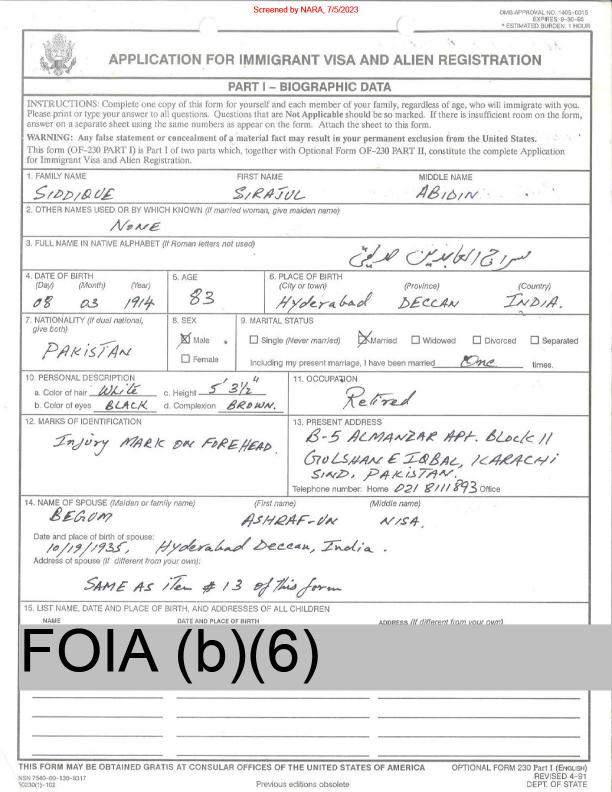 Screened by NARA, 7/5/2023
OMB APPROVAL NO. 1405-0015
EXPIRES: 9-30-95
* ESTIMATED BURDEN: 1 HOUR
APPLICATION FOR IMMIGRANT VISA AND ALIEN REGISTRATION
PART I – BIOGRAPHIC DATA
INSTRUCTIONS: Complete one copy of this form for yourself and each member of your family, regardless of age, who will immigrate with you.
Please print or type your answer to all questions. Questions that are Not Applicable should be so marked. If there is insufficient room on the form,
answer on a separate sheet using the same numbers as appear on the form. Attach the sheet to this form.
WARNING: Any false statement or concealment of a material fact may result in your permanent exclusion from the United States.
This form (OF-230 PART I) is Part I of two parts which, together with Optional Form OF-230 PART II, constitute the complete Application
for Immigrant Visa and Alien Registration.
1. FAMILY NAME FIRST NAME MIDDLE NAME
SIDDIQUE SIRAJUL ABIDIN
2. OTHER NAMES USED OR BY WHICH KNOWN (If married woman, give maiden name)
NONE
3. FULL NAME IN NATIVE ALPHABET (If Roman letters not used)
سراج العابدین صدیقی
4. DATE OF BIRTH 5. AGE 6. PLACE OF BIRTH
(Day) (Month) (Year) (City or town) (Province) (Country)
08 03 1914 83 Hyderabad DECCAN INDIA.
7. NATIONALITY (If dual national, give both) 8. SEX 9. MARITAL STATUS
PAKISTAN Male Single (Never married) Married Widowed Divorced Separated
Female Including my present marriage, I have been married One times.
10. PERSONAL DESCRIPTION 11. OCCUPATION
a. Color of hair White c. Height 5' 3½" Retired
b. Color of eyes BLACK d. Complexion BROWN.
12. MARKS OF IDENTIFICATION 13. PRESENT ADDRESS
Injury MARK ON FOREHEAD. B-5 ALMANZAR APt. BLOCK 11
GULSHAN E IQBAL, KARACHI
SIND, PAKISTAN.
Telephone number: Home 021 8111893 Office
14. NAME OF SPOUSE (Maiden or family name) (First name) (Middle name)
BEGUM ASHRAF-UN NISA.
Date and place of birth of spouse:
10/19/1935, Hyderabad Deccan, India.
Address of spouse (If different from your own):
SAME AS item # 13 of this form
15. LIST NAME, DATE AND PLACE OF BIRTH, AND ADDRESSES OF ALL CHILDREN
NAME DATE AND PLACE OF BIRTH ADDRESS (If different from your own)
FOIA (b)(6)
THIS FORM MAY BE OBTAINED GRATIS AT CONSULAR OFFICES OF THE UNITED STATES OF AMERICA
OPTIONAL FORM 230 Part I (ENGLISH)
REVISED 4-91
DEPT. OF STATE
NSN 7540-00-130-8317
50230(1)-102
Previous editions obsolete